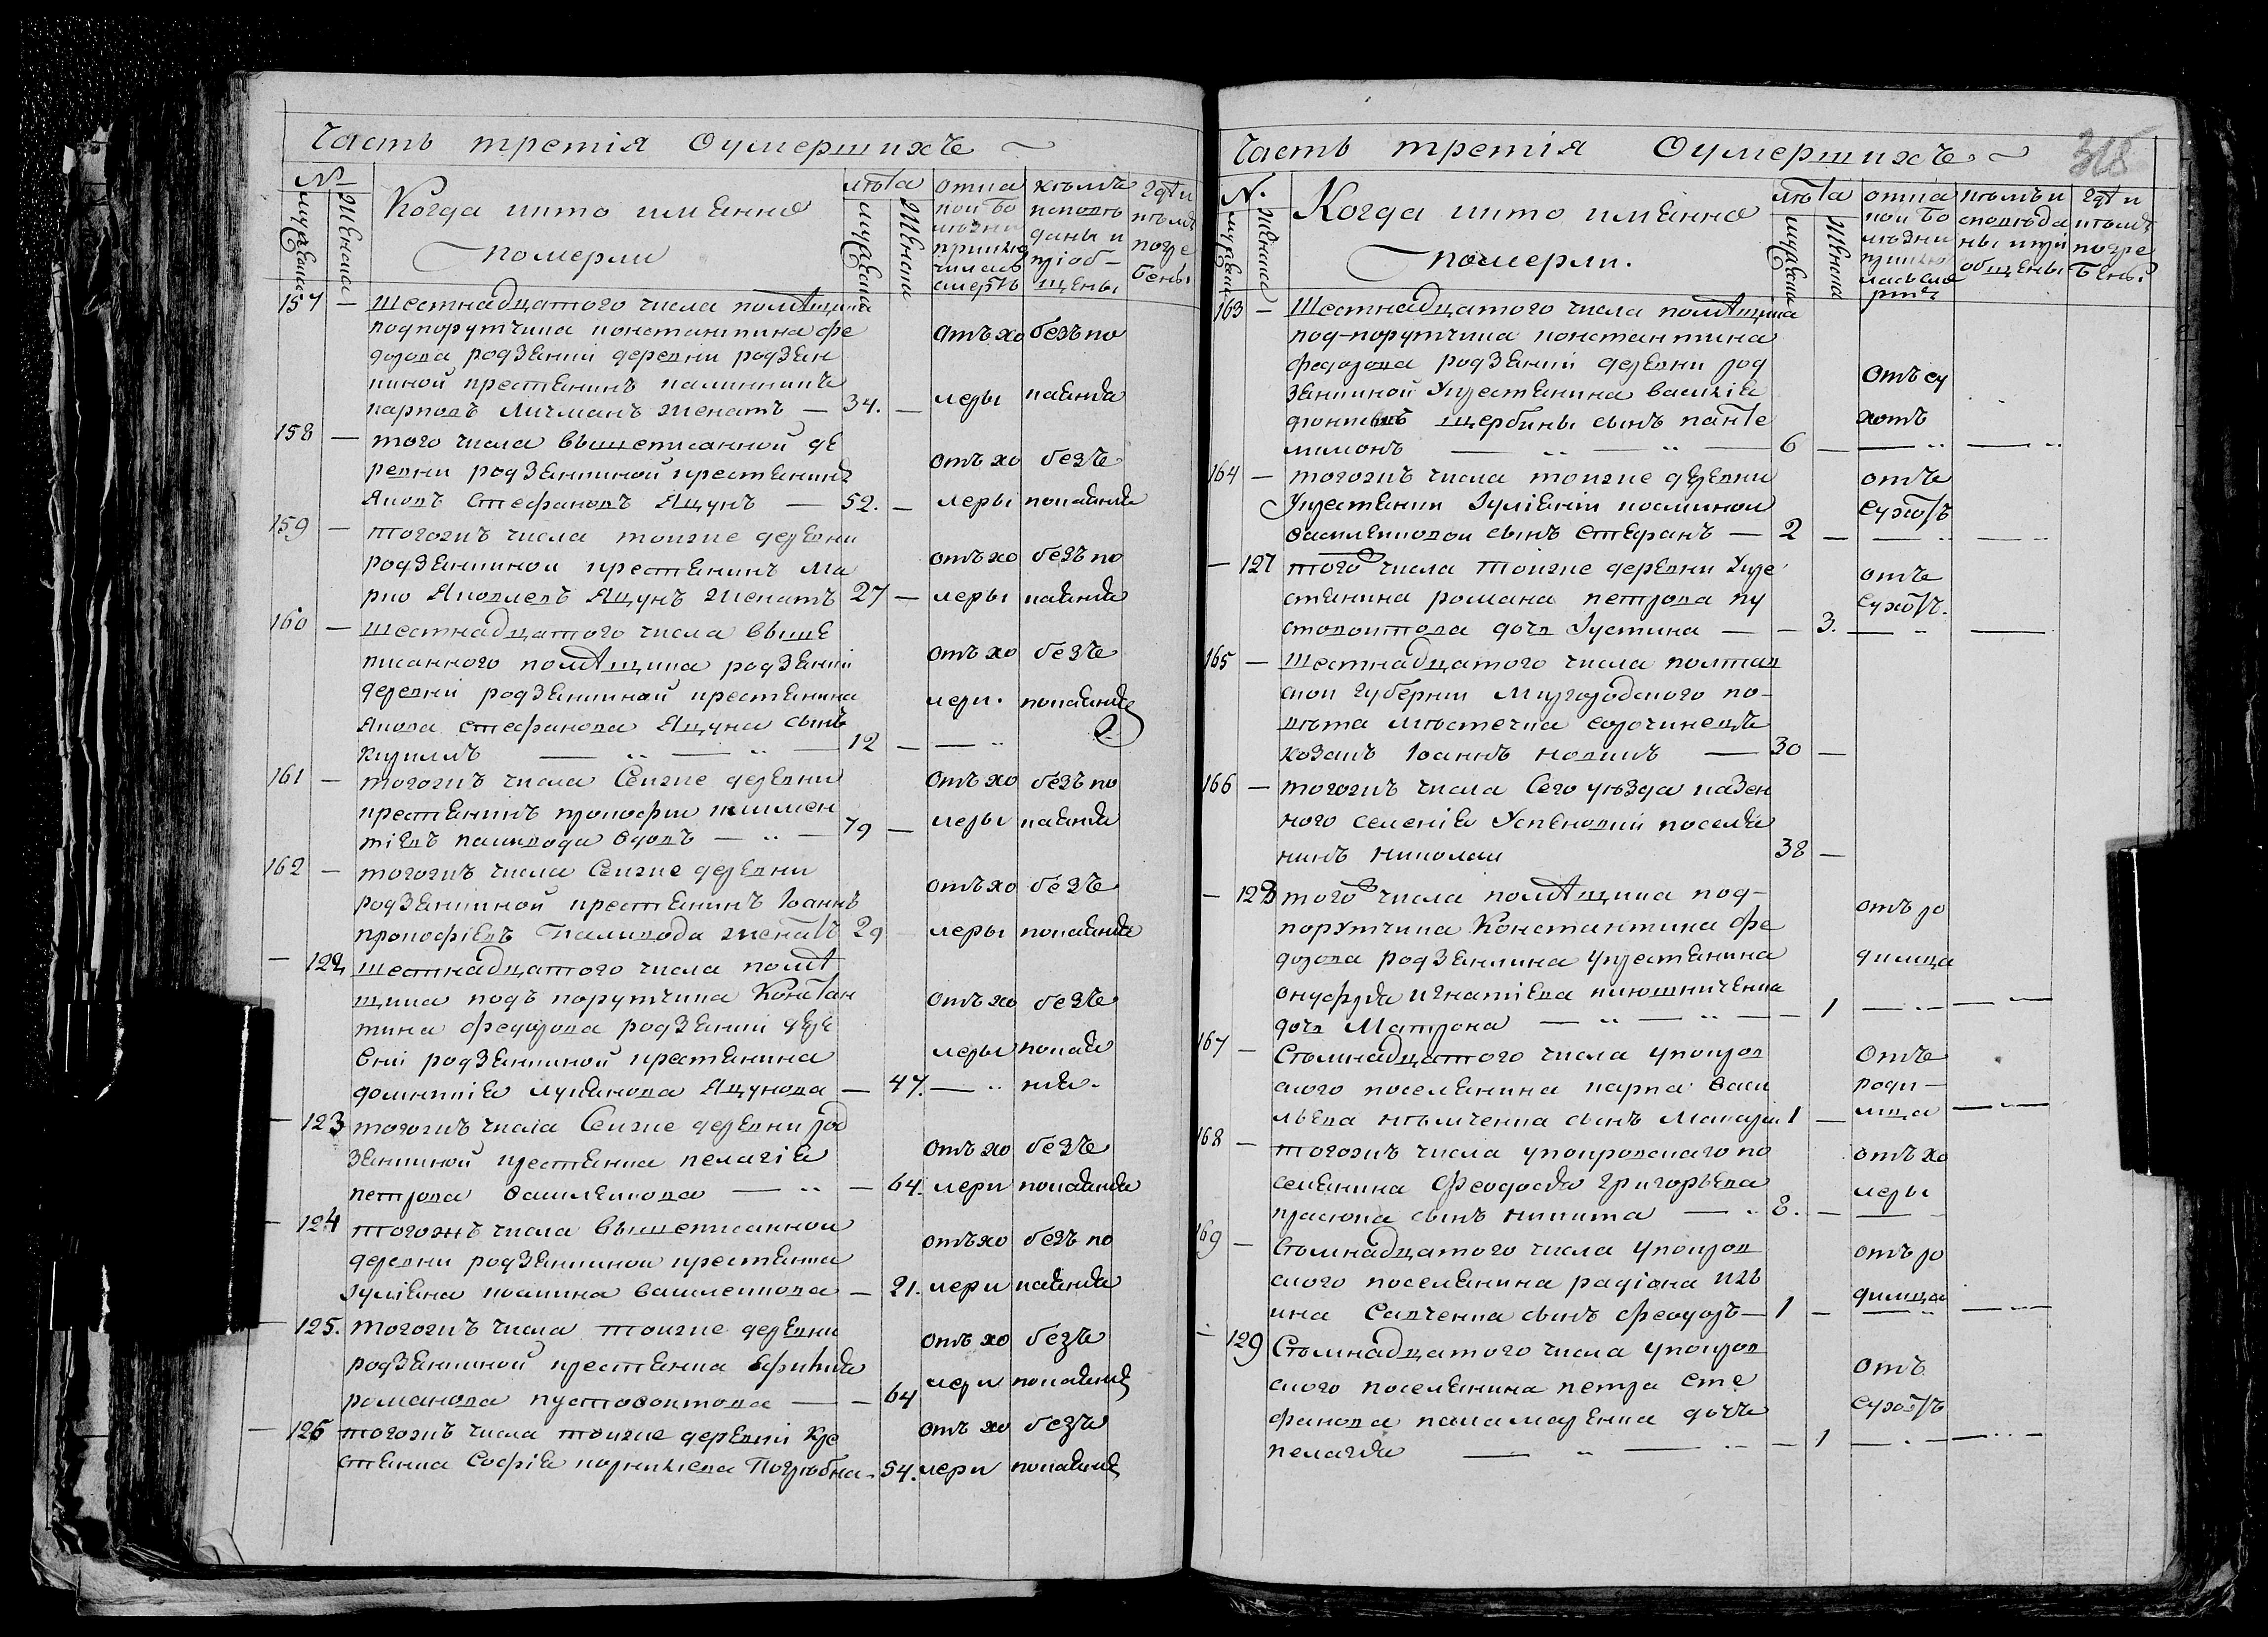 Часть третія Оумершихъ
№
мужеска
женска
Когда и кто именно
померли
лѣта
мужеска
женска
от ка
кой бо
лѣзни
приклю
чилась
смерть
кѣмъ
исповѣ
даны и
пріоб-
щены
гдѣ и
кѣмъ
погре
бены
157 — шестнадцатого числа помѣщика
подпорутчика константина фе
дорова родзянки деревни родзян
киной крестянинъ калинникъ
карповъ Личманъ женатъ — 34. —
отъ хо
леры
безъ по
каянія
158 — того числа вышеписанной де
ревни родзянкиной крестянинъ
Яковъ Стефановъ Яцунъ — 52. —
отъ хо
леры
безъ
покаянія
159 — тогожъ числа тоиже деревни
родзянкиной крестянинъ Ма
рко Яковлевъ Яцунъ женатъ 27 —
отъ хо
леры
безъ по
каянія
160 — шестнадцатого числа выше
писанного помѣщика родзянки
деревни родзянкиной крестянина
Якова стефанова Яцуна сынъ
Кириллъ — 12 —
отъ хо
лери.
безъ
покаянія
161 — тогожъ числа Сеиже деревни
крестянинъ прокофіи климен
тіевъ паливода вдовъ — 79 —
отъ хо
леры
безъ по
каянія
162 — тогожъ числа Сеиже деревни
родзянкиной крестянинъ Іоаннъ
прокофіевъ Паливода женатъ 29 —
отъ хо
леры
безъ
покаянія
— 122, шестнадцатого числа помѣ
щика подъ порутчика Констан
тина феодорова родзянки дере
вни родзянкиной крестянина
домникія лукянова Яцунова — 47.
отъ хо
леры
безъ
покая
нія.
— 123 тогожъ числа Сеиже деревни род
зянкиной крестянка пелагія
петрова василенкова — 64.
отъ хо
лери
безъ
покаянія
— 124 тогожъ числа вышеписанной
деревни родзянкиной крестянка
Іуліяна космина василенкова — 21.
отъ хо
лери
безъ по
каянія
— 125. тогожъ числа тоиже деревни
родзянкиной крестянка
романова пустовоитова — 64
отъ хо
лери
безъ
покаянія
— 126 тогожъ числа тоиже деревни кре
стянка Софія корниліева Погребна — 54.
отъ хо
лери
безъ
покаянія
Часть третія Оумершихъ.
318
№.
мужеска
женска
Когда и кто именно
померли.
лѣта
мужеска
женска
от ка
кой бо
лѣзни
приклю
лась сме
рть
кѣмъ и
споведа
ны и прі
общены
гдѣ и
кѣмъ
погре
бены.
163 — Шестнадцатого числа помѣщика
под-порутчика константина
федорова родзянки деревни род
зянкиной Крестянина василія
щербины сынъ панте
лимонъ — 6 —
отъ су
хотъ
164 — тогожъ числа тоиже деревни
Крестянки Іуліяніи косминои
василенковои сынъ стефанъ — 2 —
отъ
сухотъ
— 127 того числа тоиже деревни Кре
стянина романа петрова пу
стовоитова дочь Іустина — 3.
отъ
сухотъ.
165 — шестнадцатого числа полтав
скои губернии Миргородского по-
вѣта мѣстечка сорочинецъ
козакъ Іоаннъ — 30 —
166 — тогожъ числа Сего уѣзда казен
ного селенія Успеновки поселя
нинъ николаи 38 —
— 128 того числа помѣщика под-
порутчика Константина фе
дорова родзянкина Крестянина
онуфрія игнатіева клюшниченка
дочь Матрона — 1
отъ ро
димца
167 — Съмнадцатого числа упокров
ского поселянина карпа васи
льева сынъ Макари 1 —
отъ
роди-
мца
168 — тогожъ числа упокровскаго по
селянина Феодосія григорьева
сынъ никита — 8. —
отъ хо
леры
169 — Съмнадцатого числа упокров
ского поселянина радіона иль
ина Савченка сынъ феодоръ — 1 —
отъ ро
димца
— 129 Съмнадцатого числа упокров
ского поселянина петра сте
фанова паламаренка дочъ
пелагія — 1
отъ
сухотъ